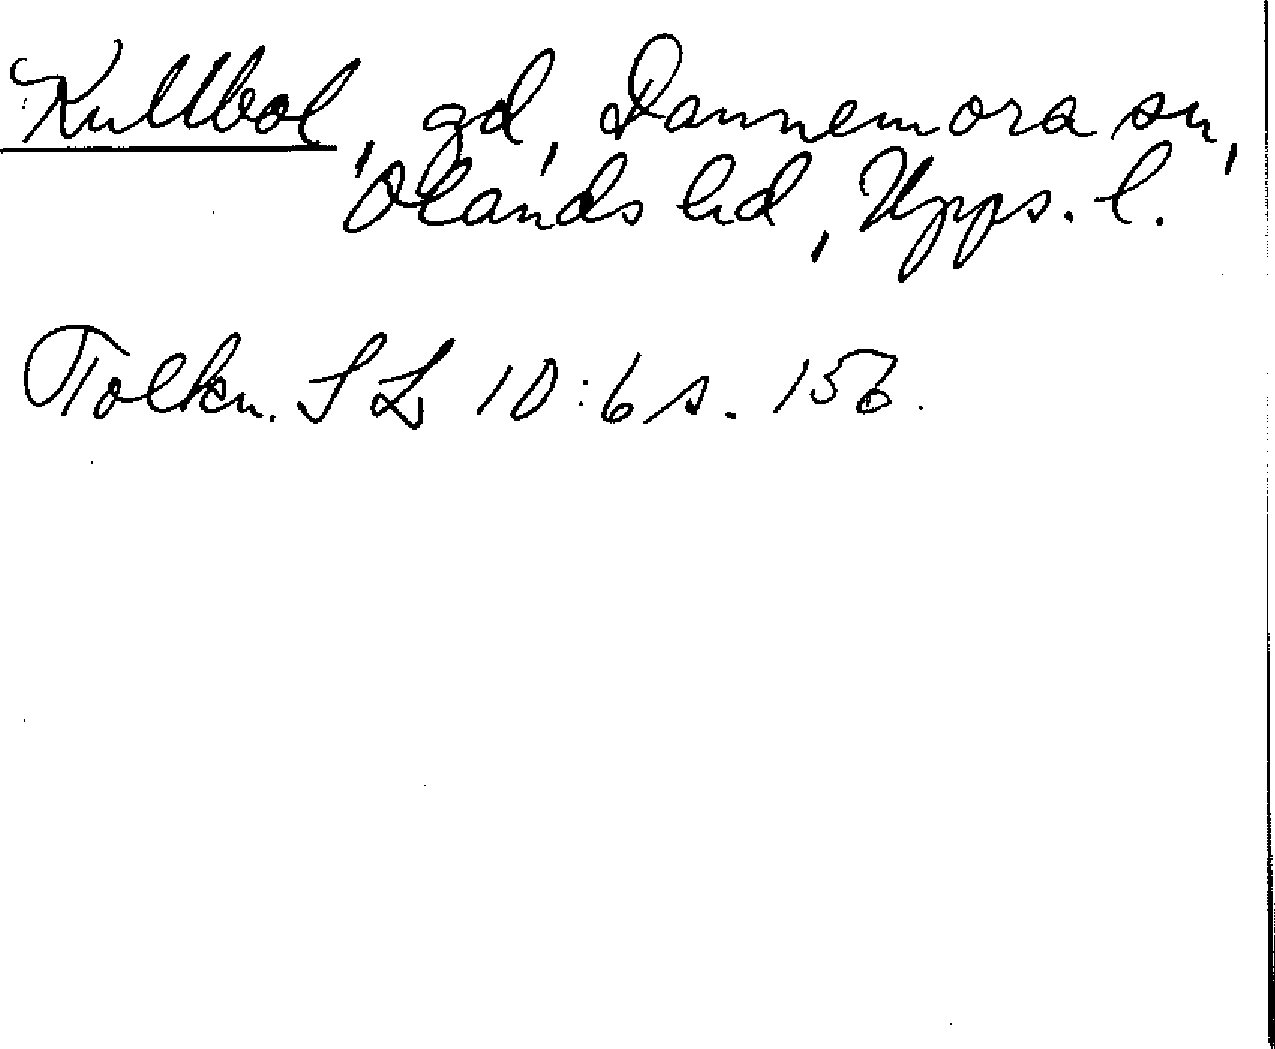 Kullbol, gd, Dannemora sn,
Olands hd, Upps. l.
Tolkn. SL 10:6 s. 156.